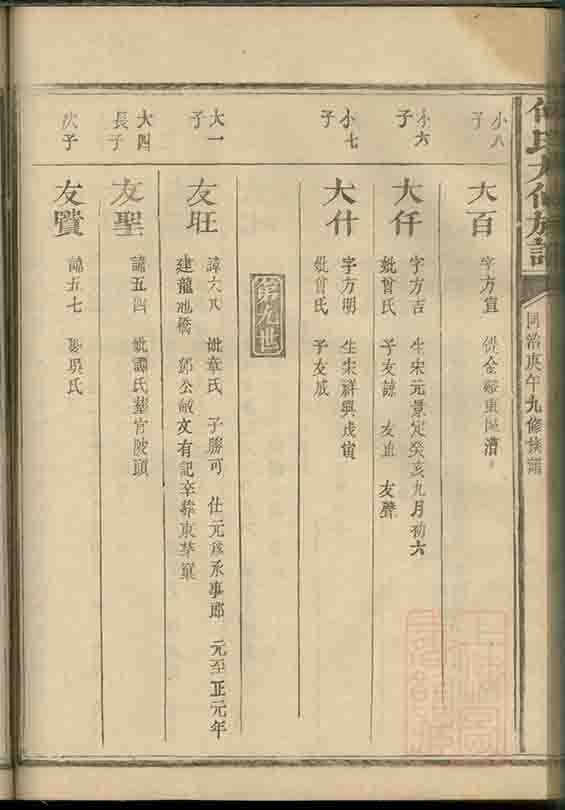 何氏大修族譜
同治庚午九修族譜
小八
子
大百
字方宜 從金谿東區漕
小六
子
大仟
字方吉 生宋元景定癸亥九月初六
妣曾氏 子友諒 友直 友聲
小七
子
大什
字方明 生宋祥興戊寅
妣曾氏 子友成
第九世
大一
子
友旺
諱六 妣章氏 子勝可 仕元爲承事郎 元至正元年
建龍池橋 鄧公敏文有記卒葬東華巢
大四
長子
友聖
諱五四 妣譚氏葬官陂頭
次子
友贇
諱五七 吳氏